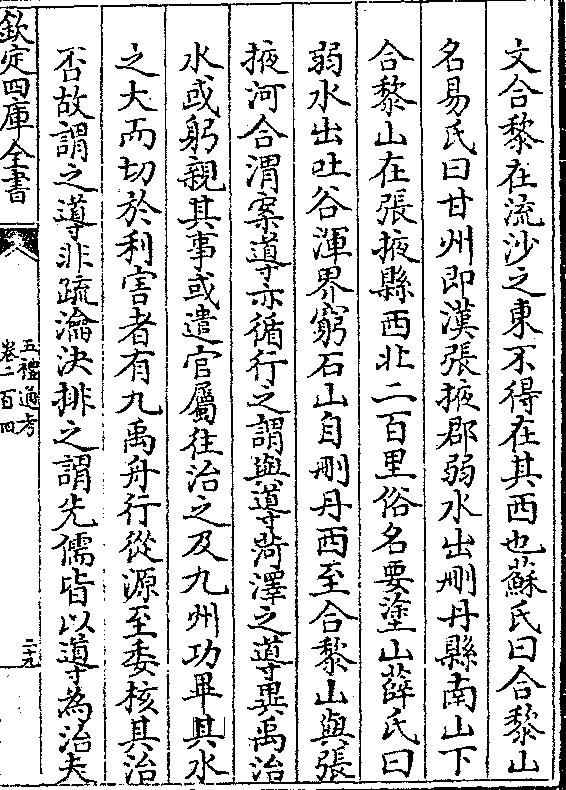 文合黎在流沙之東不得在其西也蘇氏曰合黎山
名易氏曰甘州即漢張掖郡弱水出刪丹縣南山下
合黎山在張掖縣西北二百里俗名要塗山薛氏曰
弱水出吐谷渾界窮石山自刪丹西至合黎山與張
掖河合渭案導亦循行之謂與導菏澤之導異禹治
水或躬親其事或遣官屬往治之及九州功畢其水
之大而切於利害者有九禹舟行從源至委核其治
否故謂之導非疏瀹決排之謂先儒皆以導為治夫
欽定四庫全書
五禮通考
卷二百四
二十九